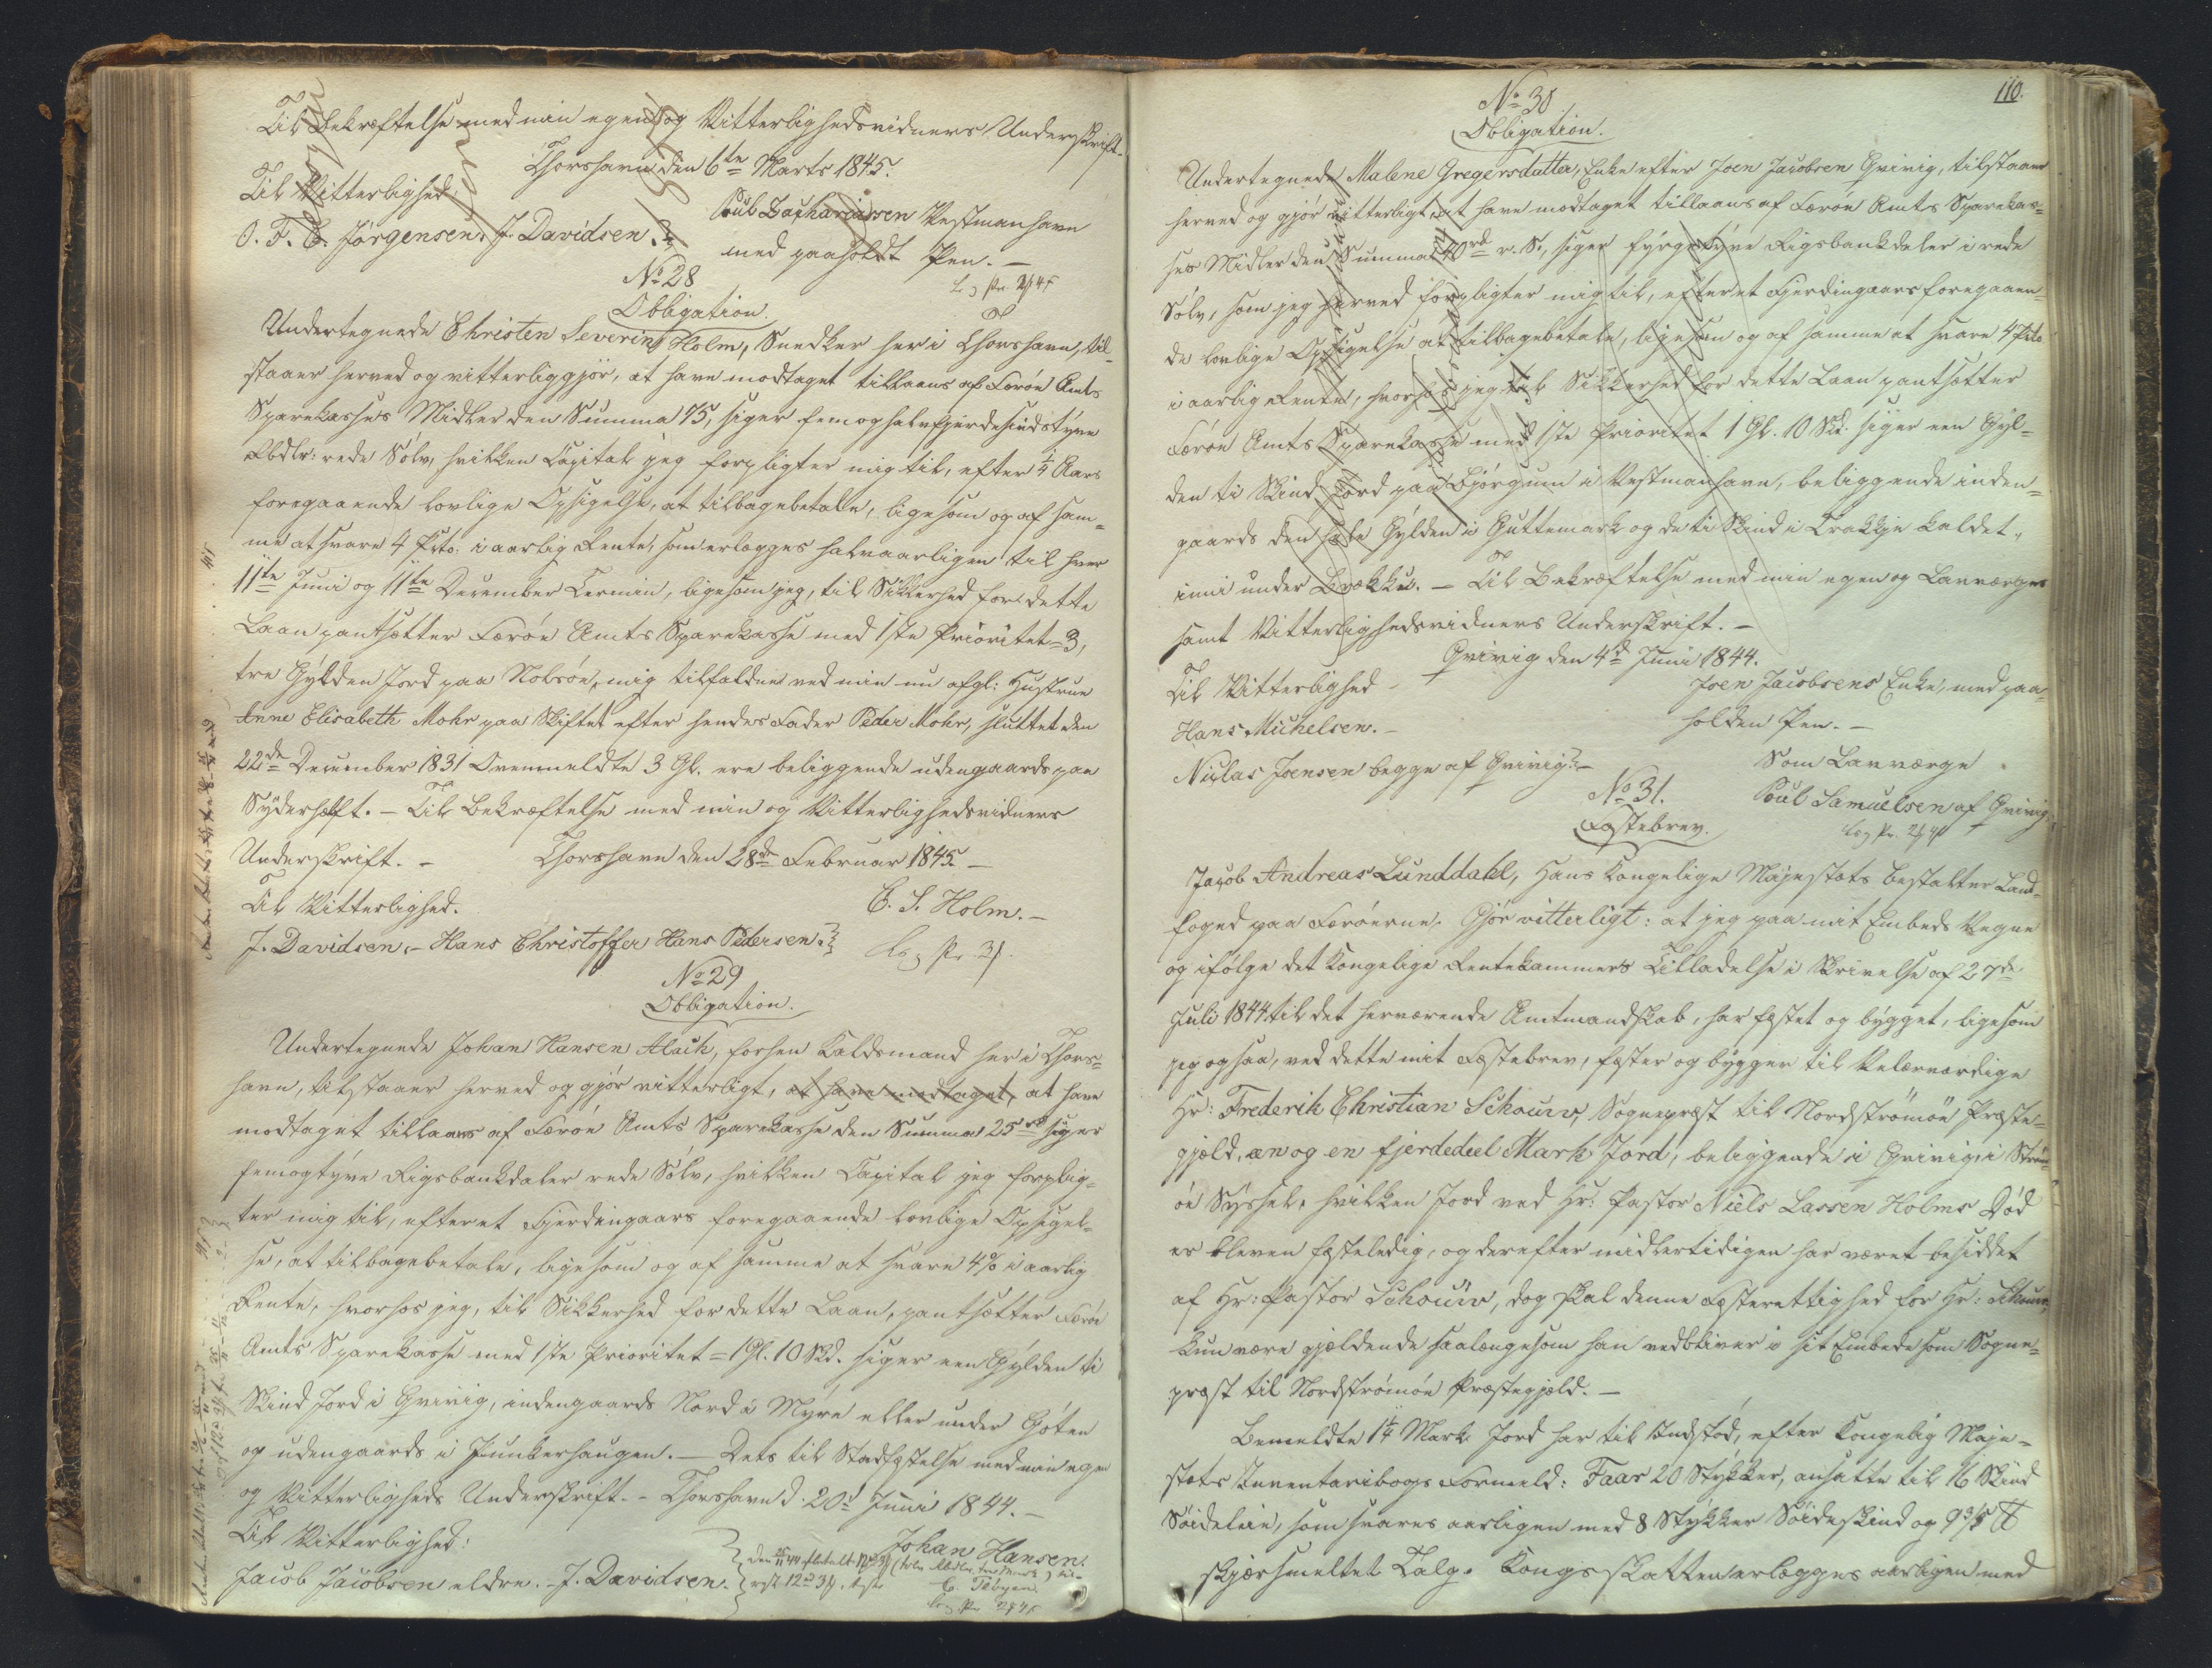 Til Bekræftelse med min egen og Vitterlighedsvidners Underskrift.
Thorshavn den 6te Marts 1845.
Til Vitterlighed
Poul Zachariassen Vestmanhavn
O. F. C. Jørgensen. J. Davidsen.
med paaholdt Pen. —
No 28
Obligation.
Undertegnede Christen Severin Holm, Snedker her i Thorshavn, til-
staaer herved og vitterliggjør, at have modtaget tillaans af Færøe Amts
Sparekasses Midler den Summa 75, siger femoghalvfjerdesindstyve
Rbdlr: rede Sølv, hvilken Capital jeg forpligter mig til, efter ¼ Aars
foregaaende lovlige Opsigelse, at tilbagebetale, ligesom og af sam-
me at svare 4 Pcto. i aarlig Rente, som erlægges halvaarligen til hver
11te Juni og 11te December Termin, ligesom jeg, til Sikkerhed for dette
Laan pantsætter Færøe Amts Sparekasse med 1ste Prioritet = 3,
tre Gylden Jord paa Nolsøe, mig tilfalden ved min nu afgl: Hustrue
Anne Elisabeth Mohr paa Skiftet efter hendes Fader Peder Mohr, sluttet den
22de December 1831 Ovenmeldte 3 Gl. ere beliggende udengaards paa
Syderhelft. — Til Bekræftelse med min og Vitterlighedsvidners
Underskrift. — Thorshavn den 28de Februar 1845. —
Til Vitterlighed.
C. S. Holm. —
J. Davidsen. — Hans Christoffer Hans Pedersen.
No 29
Obligation.
Undertegnede Johan Hansen Alach, forhen Kaldsmand her i Thors-
havn, tilstaaer herved og gjør vitterligt, at have modtaget, at have
modtaget tillaans af Færøe Amts Sparekasse den Summa 25 rd siger
femogtyve Rigsbankdaler rede Sølv, hvilken Capital jeg forplig-
ter mig til, efter et Fjerdingaars foregaaende lovlige Opsigel-
se, at tilbagebetale, ligesom og af samme at svare 4% i aarlig
Rente, hvorhos jeg, til Sikkerhed for dette Laan, pantsætter Færøe
Amts Sparekasse med 1ste Prioritet = 1 Gl. 10 Skd. siger een Gylden ti
Skind Jord i Qvivig, indengaards Nord i Myre eller under Gøten
og udengaards i Junkerhaugen. — Dets til Stadfæstelse med min egen
og Vitterligheds Underskrift. — Thorshavn d. 20d Juni 1844. —
Til Vitterlighed:
Johan Hansen.
Jacob Jacobsen eldre. — J. Davidsen.
110.
No 30
Obligation.
Undertegnede Malene Gregersdatter, Enke efter Joen Jacobsen Qvivig, tilstaaer
herved og gjør vitterligt, at have modtaget tillaans af Færøe Amts Sparekas-
ses Midler den Summa 40 rd r. S., siger fyrgetyve Rigsbankdaler i rede
Sølv, som jeg herved forpligter mig til, efter et Fjerdingaars foregaaen-
de lovlige Opsigelse at tilbagebetale, ligesom og af samme at svare 4 Pcto
i aarlig Rente, hvorhos jeg til Sikkerhed for dette Laan pantsætter
Færøe Amts Sparekasse med 1ste Prioritet 1 Gl. 10 Skd. siger een Gyl-
den ti Skind Jord paa Bjørgum i Vestmanhavn, beliggende inden-
gaards den hele Gylden i Guttemark og de ti Skind i Trakkje kaldet,
inni under Brekku. — Til Bekræftelse med min egen og Lavværges
samt Vitterlighedsvidners Underskrift. —
Qvivig den 4d Juni 1844.
Til Vitterlighed
Joen Jacobsens Enke, med paa-
Hans Michelsen. —
holden Pen. —
Niclas Joensen begge af Qvivig. —
Som Lavværge
No 31.
Poul Samuelsen af Qvivig.
Fæstebrev.
Jacob Andreas Lunddahl, Hans Kongelige Majestæts bestalter Land-
foged paa Færøerne. Gjør vitterligt: at jeg paa mit Embeds Vegne
og ifølge det Kongelige Rentekammers Tilladelse i Skrivelse af 27de
Juli 1844 til det herværende Amtmandskab, har fæstet og bygget, ligesom
jeg ogsaa, ved dette mit Fæstebrev, fæster og bygger til Velærværdige
Hr: Frederik Christian Schouw, Sognepræst til Nordstrømøe Præste-
gjæld, en og en fjerdedeel Mark Jord, beliggende i Qvivig, i Strøm-
øe Syssel, hvilken Jord ved Hr: Pastor Niels Lassen Holms Død
er bleven fæsteledig, og derefter midlertidigen har været besiddet
af Hr: Pastor Schouw, dog skal denne Fæsterettighed for Hr: Schouw
kun være gjældende saalænge som han vedbliver i sit Embede som Sogne-
præst til Nordstrømøe Præstegjæld. —
Bemeldte 1¼ Mark Jord har til Indstød, efter Kongelig Maje-
stæts Inventariibogs Formeld: Faar 20 Stykker, ansatte til 16 Skind
Søideleie, som svares aarligen med 8 Stykker Søideskind og 9 3/5 ℔
skjærsmeltet Talg. Kongsskatten erlægges aarligen med